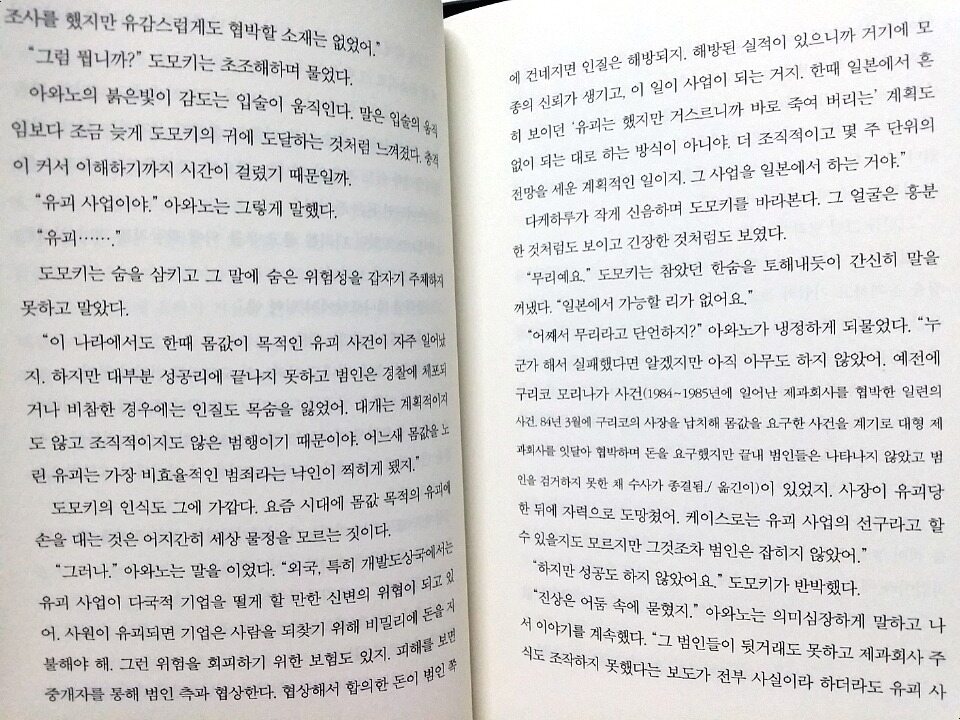 조사를 했지만 유감스럽게도 협박할 소재는 없었어.”
“그럼 뭡니까?” 도모키는 초조해하며 물었다.
아와노의 붉은빛이 감도는 입술이 움직인다. 말은 입술의 움직
임보다 조금 늦게 도모키의 귀에 도달하는 것처럼 느껴졌다. 충격
이 커서 이해하기까지 시간이 걸렸기 때문일까.
“유괴 사업이야.” 아와노는 그렇게 말했다.
“유괴……”
도모키는 숨을 삼키고 그 말에 숨은 위험성을 갑자기 주체하지
못하고 말았다.
“이 나라에서도 한때 몸값이 목적인 유괴 사건이 자주 일어났
지. 하지만 대부분 성공리에 끝나지 못하고 범인은 경찰에 체포되
거나 비참한 경우에는 인질도 목숨을 잃었어. 대개는 계획적이지
도 않고 조직적이지도 않은 범행이기 때문이야. 어느새 몸값을 노
린 유괴는 가장 비효율적인 범죄라는 낙인이 찍히게 됐지.”
도모키의 인식도 그에 가깝다. 요즘 시대에 몸값 목적의 유괴에
손을 대는 것은 어지간히 세상 물정을 모르는 짓이다.
“그러나.” 아와노는 말을 이었다. “외국, 특히 개발도상국에서는
유괴 사업이 다국적 기업을 떨게 할 만한 신변의 위협이 되고 있
어. 사원이 유괴되면 기업은 사람을 되찾기 위해 비밀리에 돈을 지
불해야 해. 그런 위험을 회피하기 위한 보험도 있지. 피해를 보면
중개자를 통해 범인 측과 협상한다. 협상해서 합의한 돈이 범인 쪽
에 건네지면 인질은 해방되지. 해방된 실적이 있으니까 거기에 모
종의 신뢰가 생기고, 이 일이 사업이 되는 거지. 한때 일본에서 흔
히 보이던 ‘유괴는 했지만 거스르니까 바로 죽여 버리는’ 계획도
없이 되는 대로 하는 방식이 아니야. 더 조직적이고 몇 주 단위의
전망을 세운 계획적인 일이지. 그 사업을 일본에서 하는 거야.”
다케하루가 작게 신음하며 도모키를 바라본다. 그 얼굴은 흥분
한 것처럼도 보이고 긴장한 것처럼도 보였다.
“무리예요.” 도모키는 참았던 한숨을 토해내듯이 간신히 말을
꺼냈다. “일본에서 가능할 리가 없어요.”
“어째서 무리라고 단언하지?” 아와노가 냉정하게 되물었다. “누
군가 해서 실패했다면 알겠지만 아직 아무도 하지 않았어. 예전에
구리코 모리나가 사건(1984~1985년에 일어난 제과회사를 협박한 일련의
사건. 84년 3월에 구리코의 사장을 납치해 몸값을 요구한 사건을 계기로 대형 제
과회사를 잇달아 협박하며 돈을 요구했지만 끝내 범인들은 나타나지 않았고 범
인을 검거하지 못한 채 수사가 종결됨./ 옮긴이)이 있었지. 사장이 유괴당
한 뒤에 자력으로 도망쳤어. 케이스로는 유괴 사업의 선구라고 할
수 있을지도 모르지만 그것조차 범인은 잡히지 않았어.”
“하지만 성공도 하지 않았어요.” 도모키가 반박했다.
“진상은 어둠 속에 묻혔지.” 아와노는 의미심장하게 말하고 나
서 이야기를 계속했다. “그 범인들이 뒷거래도 못하고 제과회사 주
식도 조작하지 못했다는 보도가 전부 사실이라 하더라도 유괴 사